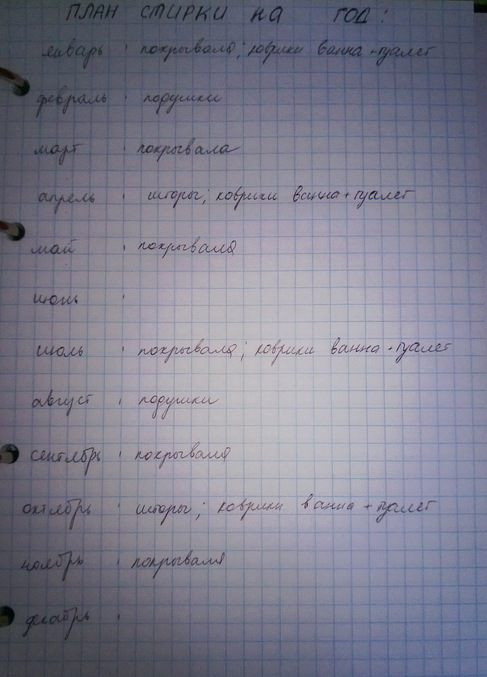 ПЛАН СТИРКИ НА ГОД:
январь : покрывала; коврики ванна+туалет
февраль : подушки
март : покрывала
апрель : шторы; коврики ванна+туалет
май : покрывала
июнь :
июль : покрывала; коврики ванна+туалет
август : подушки
сентябрь : покрывала
октябрь : шторы; коврики ванна+туалет
ноябрь : покрывала
декабрь :